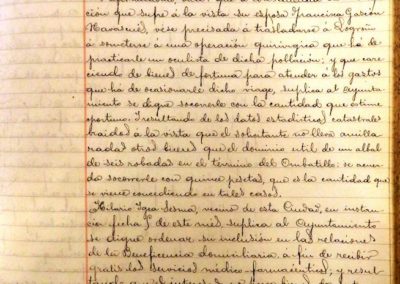 ción que sufre á la vista su esposa Francisca Garión
Navascués, vese precisada á trasladarse á Logroño
á someterse á una operación quirúrgica que há de
practicarle un oculista de dicha población; y que care
ciendo de bienes de fortuna para atender á los gastos
que há de ocasionarle dicho viaje, suplica al Ayunta-
miento se digne socorrerle con la cantidad que estime
oportuno. Y resultando de los datos estadísticos catastrales
traidos á la vista que el solicitante no lleva amilla
radas otros bienes que el dominio util de un albal
de seis robadas en el término del Ombatillo: se acuer
da socorrerle con quince pesetas, que es la cantidad que
se viene concediendo en tales casos.
Hilario Igea Sesma, vecino de esta Ciudad, en instan
cia fecha 5 de este mes, suplica al Ayuntamiento
se digne ordenar su inclusión en las relaciones
de la Beneficencia domiciliaria á fin de recibir
gratis los servicios médico-farmacéuticos; y resul